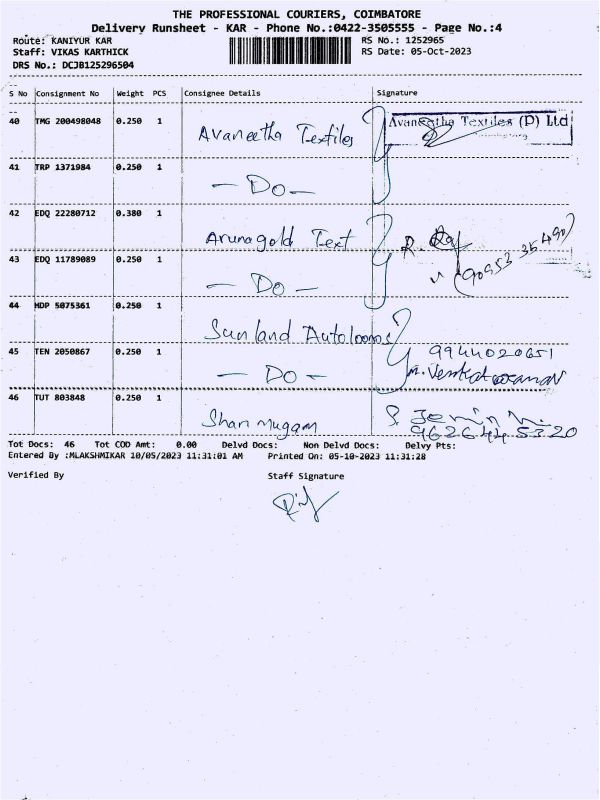 THE PROFESSIONAL COURIERS, COIMBATORE
Delivery Runsheet - KAR - Phone No.:0422-3505555 - Page No.:4
Route: KANIYUR KAR RS No.: 1252965
Staff: VIKAS KARTHICK RS Date: 05-Oct-2023
DRS No.: DCJB125296504
S No Consignment No Weight PCS Consignee Details Signature
40 TMG 200498048 0.250 1 Avaneetha Textiles Avaneetha Textiles (P) Ltd
41 TRP 1371984 0.250 1 - Do -
42 EDQ 22280712 0.380 1 Arunagold Text R.
43 EDQ 11789089 0.250 1 - Do - 90953 35490
44 HDP 5075361 0.250 1 Sunland Autolooms
45 TEN 2050867 0.250 1 - Do - 9944020651
46 TUT 803848 0.250 1 Shanmugam 9626445320
Tot Docs: 46 Tot COD Amt: 0.00 Delvd Docs: Non Delvd Docs: Delvy Pts:
Entered By :MLAKSHMIKAR 10/05/2023 11:31:01 AM Printed On: 05-10-2023 11:31:28
Verified By Staff Signature